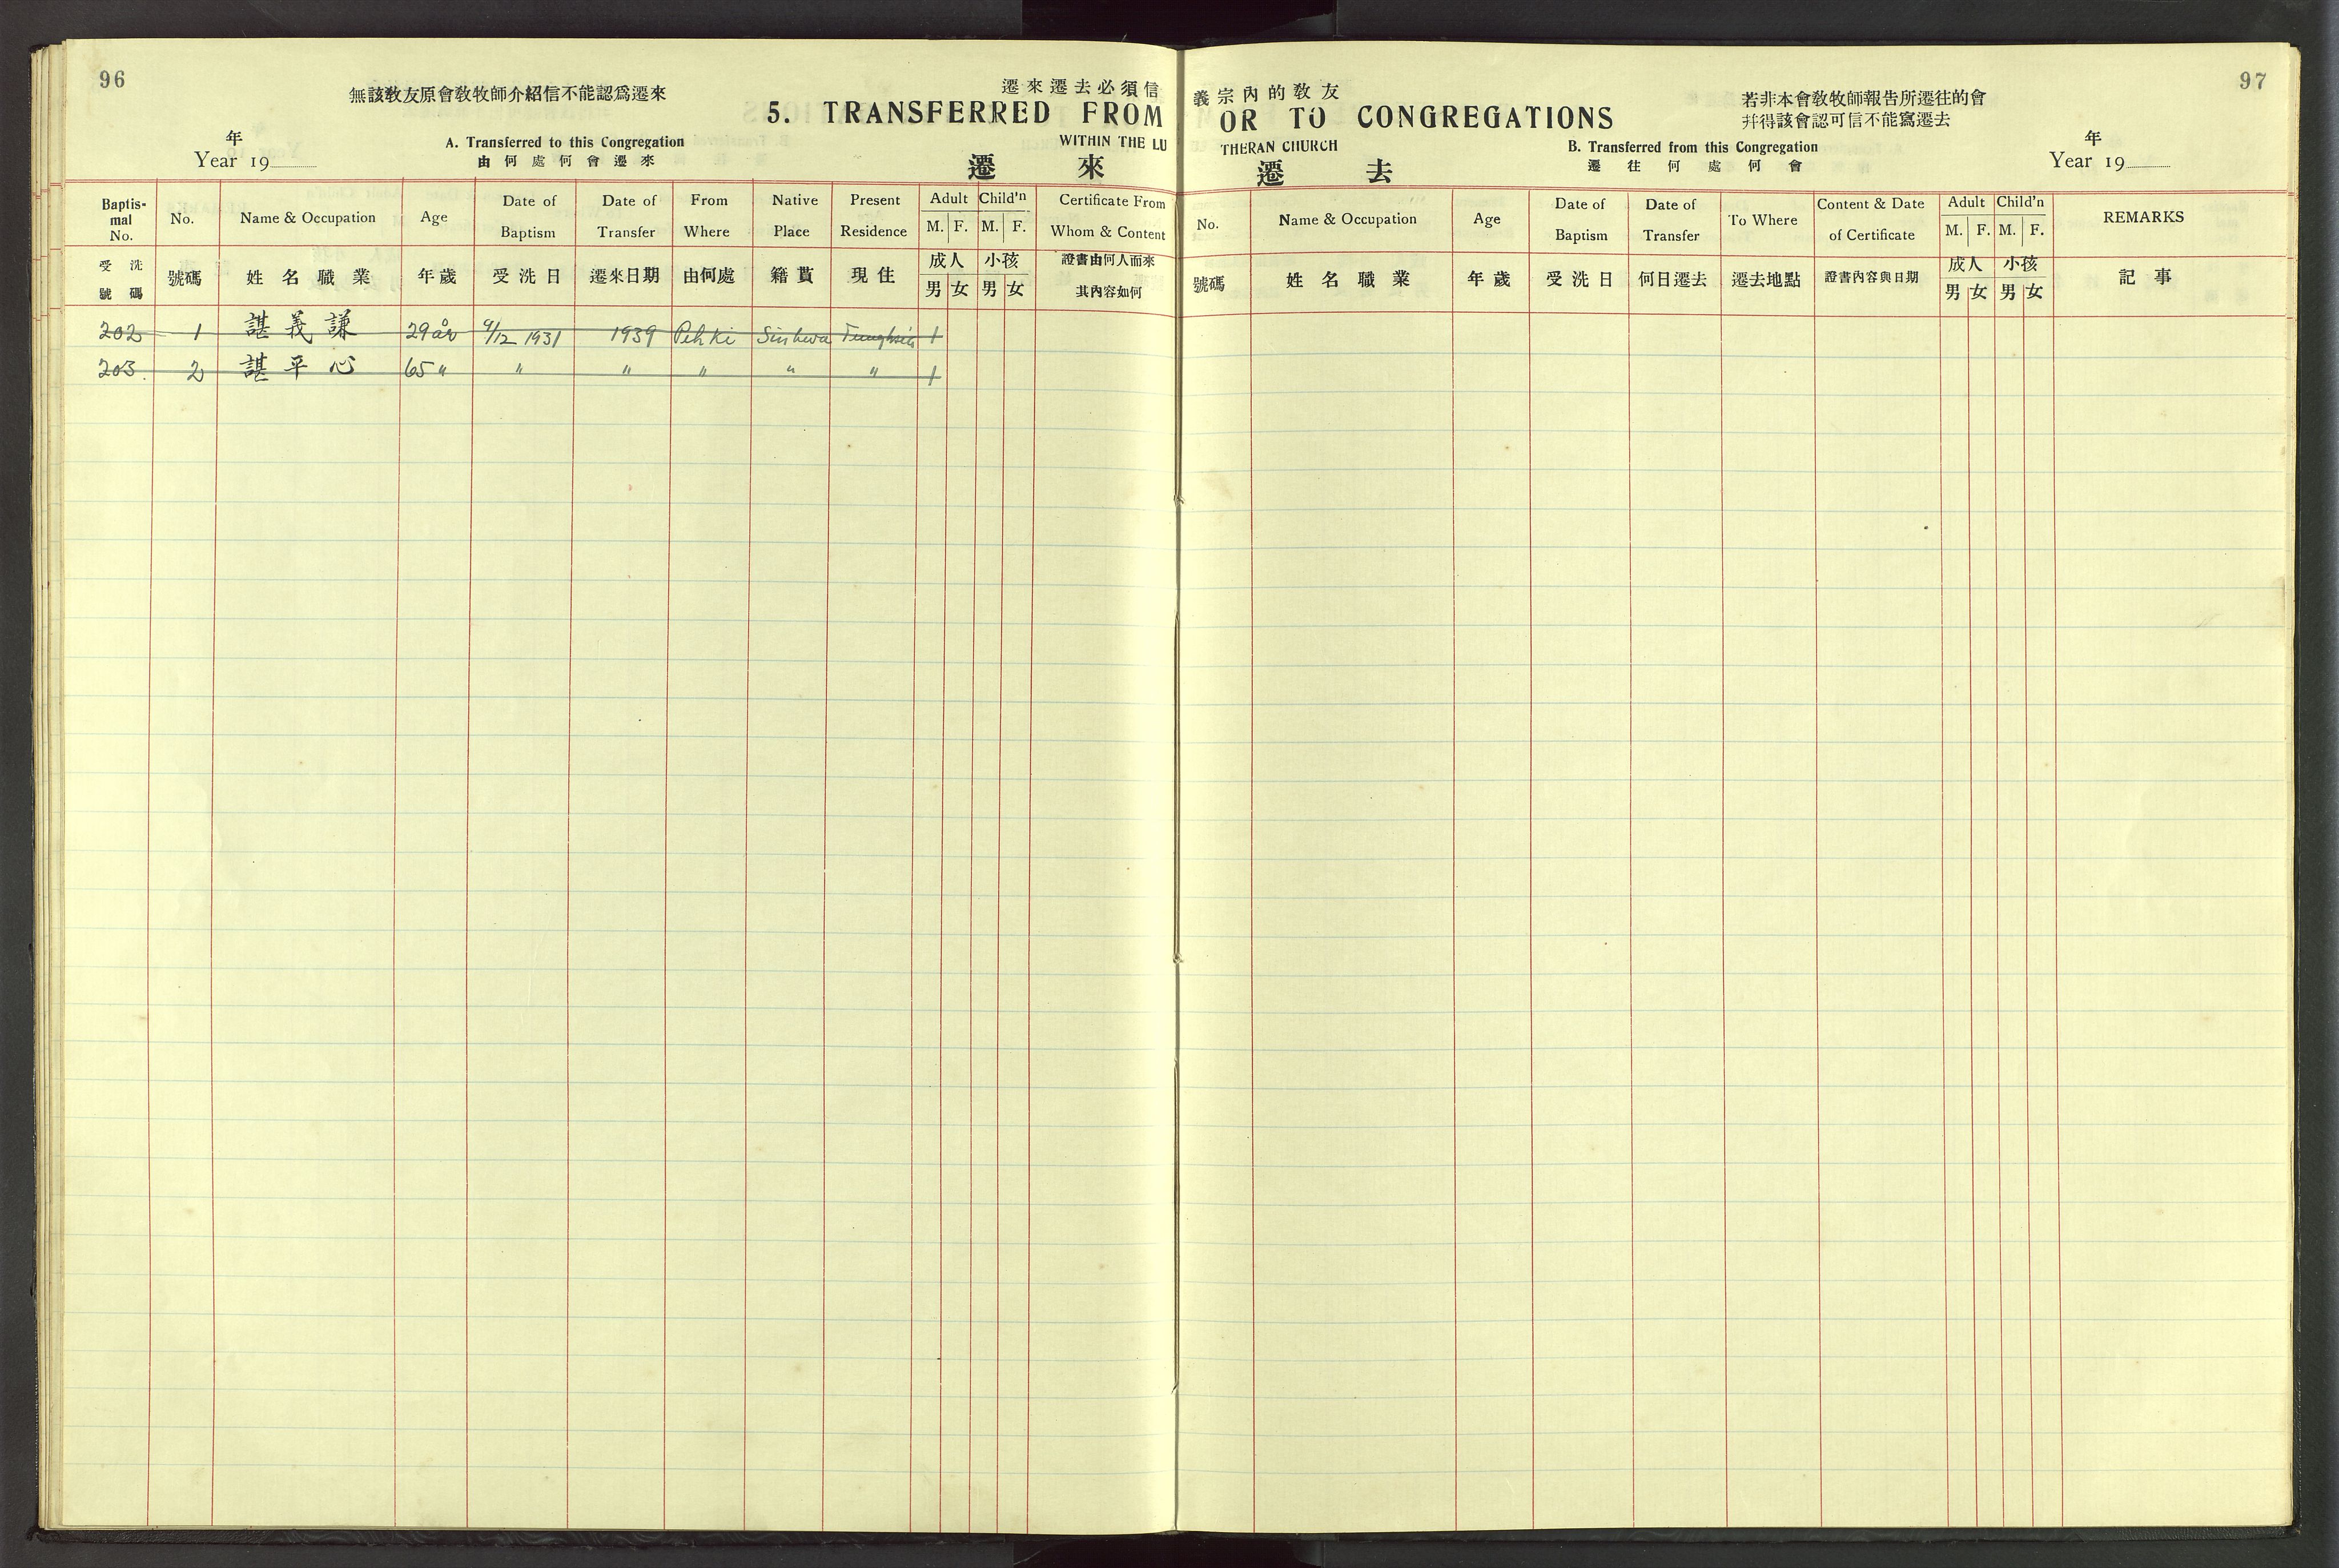 96
無該敎友原會敎牧師介紹信不能認爲遷來
遷來遷去必須信
5. TRANSFERRED FROM
WITHIN THE LU
年
Year 19
A. Transferred to this Congregation
由何處何會遷來
遷來
Baptismal No. No. Name & Occupation Age Date of Baptism Date of Transfer From Where Native Place Present Residence Adult M. F. Child'n M. F. Certificate From Whom & Content
受洗號碼 號碼 姓名職業 年歲 受洗日 遷來日期 由何處 籍貫 現住 成人 男 女 小孩 男 女 證書由何人而來其內容如何
202 1 諶義謙 29 år 9/12 1931 1939 Peh Ki Sinhwa Tunghsin 1
203. 2 諶平心 65 " " " " " " 1
97
義宗內的敎友
OR TO CONGREGATIONS
THERAN CHURCH
若非本會敎牧師報告所遷往的會
幷得該會認可信不能寫遷去
B. Transferred from this Congregation
遷往何處何會
年
Year 19
遷去
No. Name & Occupation Age Date of Baptism Date of Transfer To Where Content & Date of Certificate Adult M. F. Child'n M. F. REMARKS
號碼 姓名職業 年歲 受洗日 何日遷去 遷去地點 證書內容與日期 成人 男 女 小孩 男 女 記事